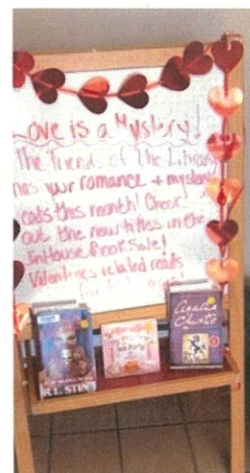 Love is a Mystery!
The Friends of the Library
has your romance + mystery
reads this month! Check
out the new titles in the
InHouse Book Sale!
Valentines related reads
for
R.L. STINE
Tea Party
Agatha
Christie